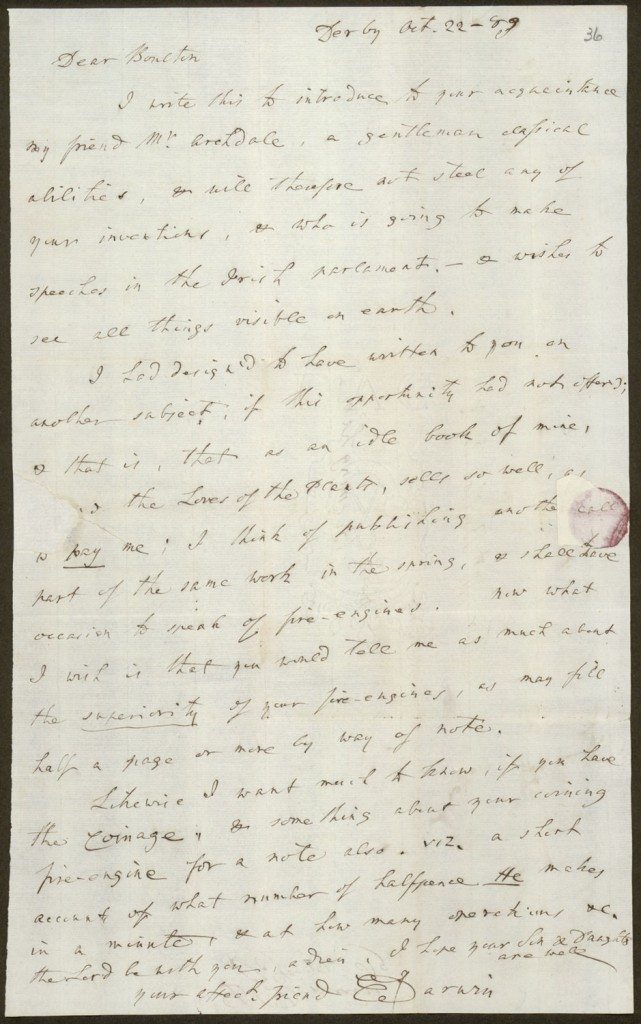 Derby Oct. 22 - 89
36
Dear Boulton
I write this to introduce to your acquaintance
my friend Mr. Archdale, a gentleman classical
abilities, & will therefore not steal any of
your inventions, & who is going to make
speeches in the Irish parlament. — & wishes to
see all things visible on earth.
I had design'd to have written to you on
another subject, if this opportunity had not offer'd;
& that is, that as an idle book of mine,
the Loves of the Plants, sells so well, as
to pay me; I think of publishing another
part of the same work in the spring, & shall have
occasion to speak of fire-engines. Now what
I wish is that you would tell me as much about
the superiority of your fire-engines, as may fill
half a page or more by way of note.
Likewise I want much to know, if you have
the Coinage; & something about your coining
fire-engine for a note also. viz. a short
account of what number of halfpence He makes
in a minute, & at how many operations &c.
the Lord be with you, adieu, I hope your Son & Daughter
are well
your affect. friend E Darwin